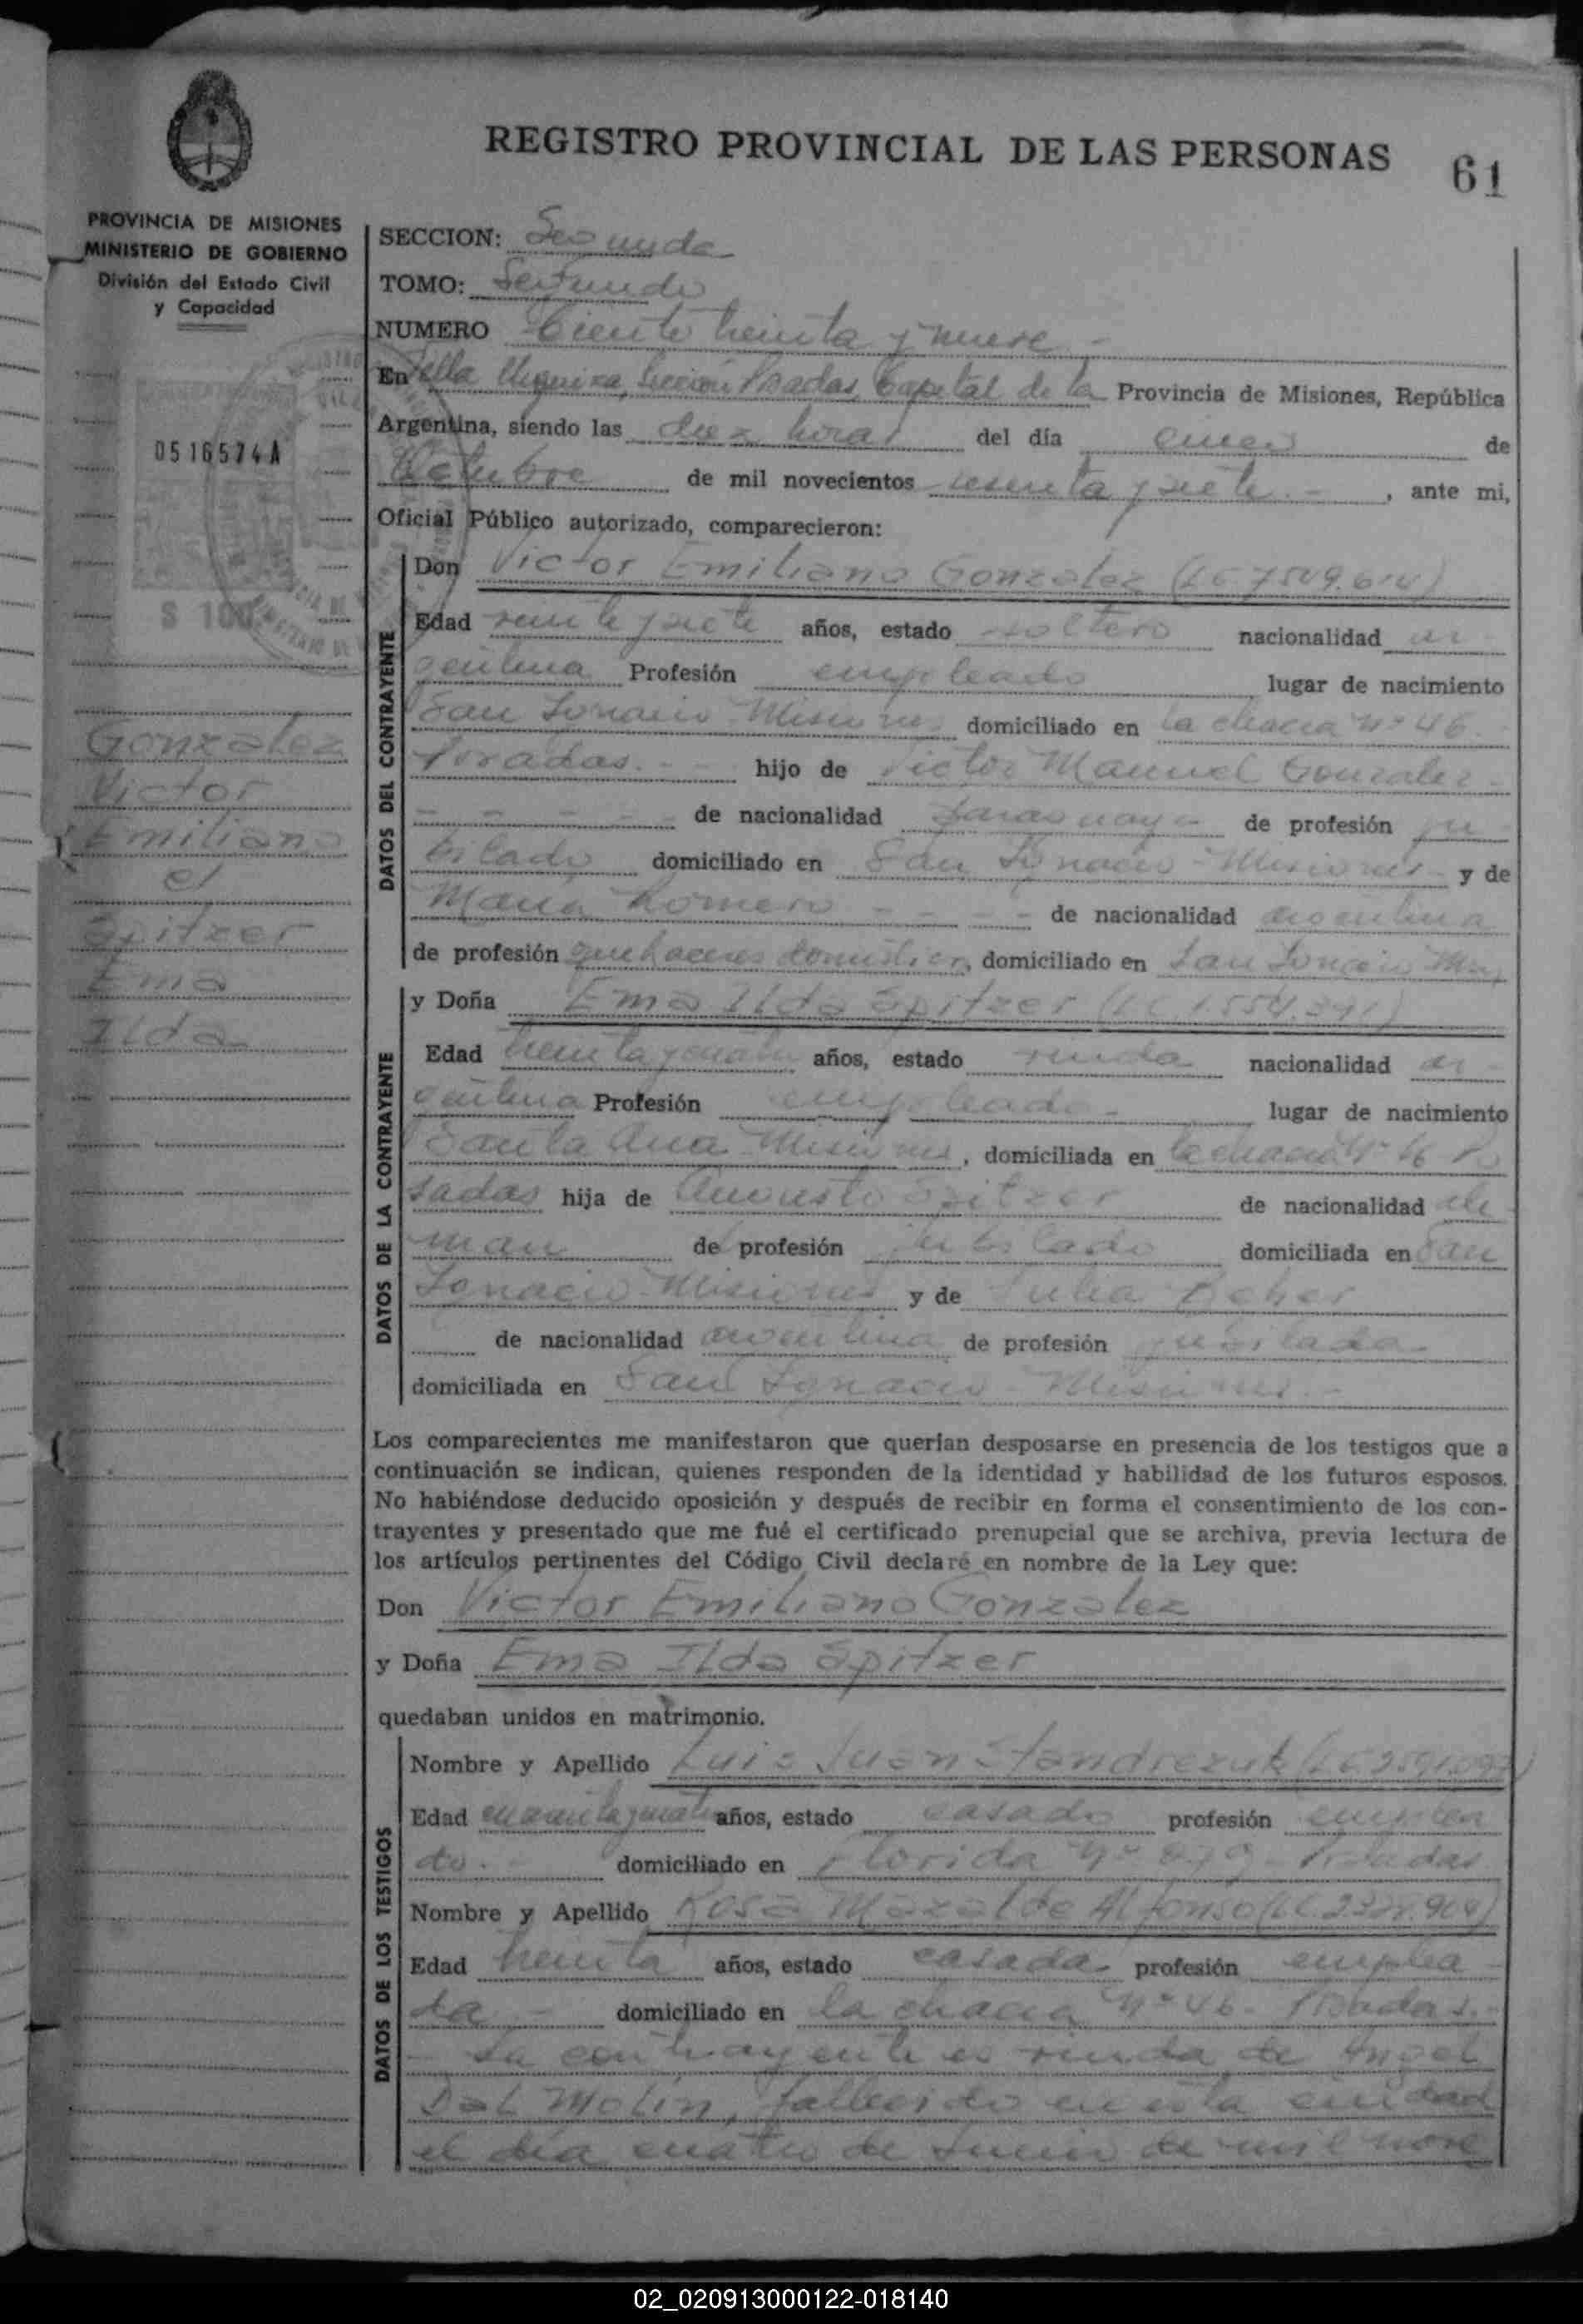 REGISTRO PROVINCIAL DE LAS PERSONAS
61
PROVINCIA DE MISIONES
MINISTERIO DE GOBIERNO
División del Estado Civil
y Capacidad
0516574A
$ 100
Gonzalez
Victor
Emiliano
el
Spitzer
Ema
Ilda
SECCION: Segunda
TOMO: Segundo
NUMERO Ciento treinta y nueve -
En Villa Urquiza, Sección Posadas, Capital de la Provincia de Misiones, República
Argentina, siendo las diez horas del día cinco de
Octubre de mil novecientos sesenta y siete. - , ante mi,
Oficial Público autorizado, comparecieron:
DATOS DEL CONTRAYENTE
Don Victor Emiliano Gonzalez
Edad veinte y siete años, estado soltero nacionalidad ar-
gentina Profesión empleado lugar de nacimiento
San Ignacio - Misiones domiciliado en la chacra Nº 46.
Posadas. - - hijo de Victor Manuel Gonzalez -
- - - - - de nacionalidad paraguaya - de profesión ju-
bilado domiciliado en San Ignacio - Misiones - y de
Maria Romero - - - - - de nacionalidad argentina
de profesión quehaceres domésticos, domiciliado en San Ignacio Mnes
DATOS DE LA CONTRAYENTE
y Doña Ema Ilda Spitzer (LC 1.554.391)
Edad treinta y cuatro años, estado viuda nacionalidad ar-
gentina Profesión empleada - lugar de nacimiento
Santa Ana - Misiones, domiciliada en la chacra Nº 46 Po
sadas hija de Augusto Spitzer de nacionalidad ale-
man de profesión jubilado domiciliada en San
Ignacio - Misiones y de Julia
de nacionalidad argentina de profesión jubilada
domiciliada en San Ignacio - Misiones. -
Los comparecientes me manifestaron que querían desposarse en presencia de los testigos que a
continuación se indican, quienes responden de la identidad y habilidad de los futuros esposos.
No habiéndose deducido oposición y después de recibir en forma el consentimiento de los con-
trayentes y presentado que me fué el certificado prenupcial que se archiva, previa lectura de
los artículos pertinentes del Código Civil declaré en nombre de la Ley que:
Don Victor Emiliano Gonzalez
y Doña Ema Ilda Spitzer
quedaban unidos en matrimonio.
DATOS DE LOS TESTIGOS
Nombre y Apellido Luis Juan
Edad cuarenta y cuatro años, estado casado profesión emplea
do. - domiciliado en Florida Nº - Posadas
Nombre y Apellido Rosa Mazal de Alfonso
Edad treinta años, estado casada profesión emplea -
da - domiciliado en la chacra Nº 46 - Posadas. -
- La contrayente es viuda de Angel
Dal Molin, fallecido en esta ciudad
el día cuatro de Junio de mil nove
02_020913000122-018140